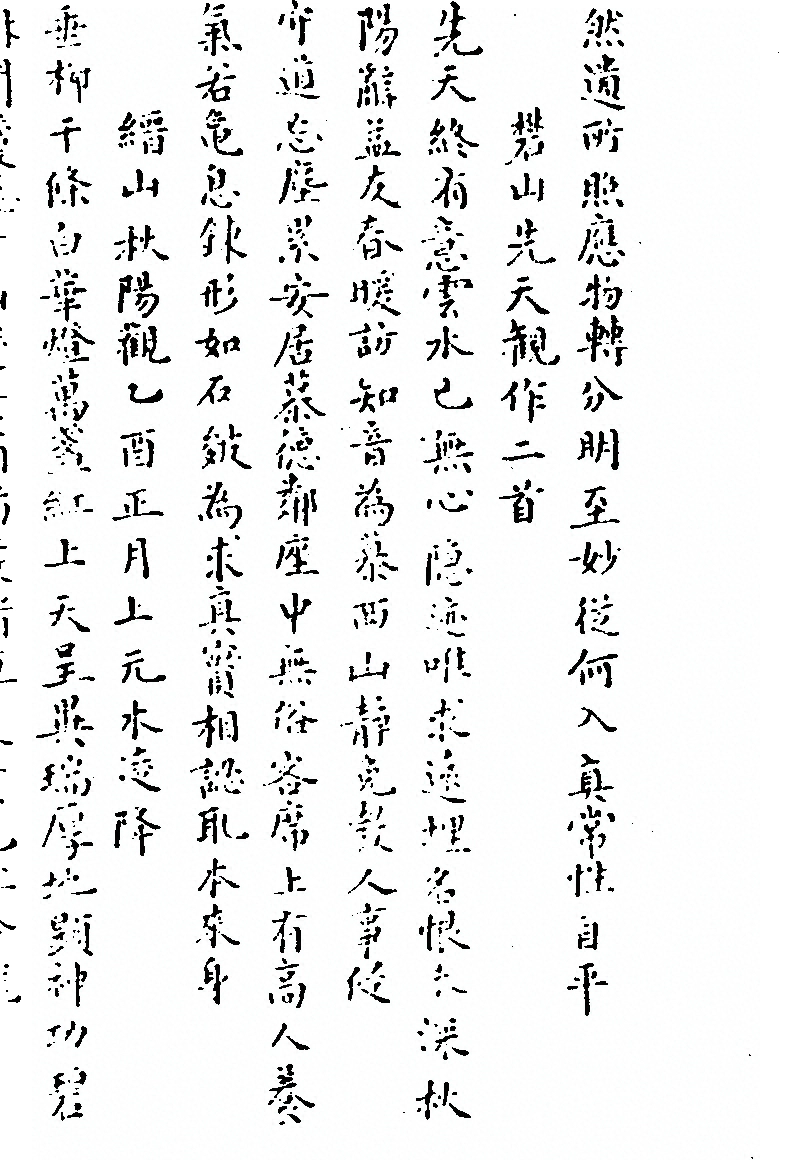 然遺所照應物轉分明至妙從何入真常性自平
礬山先天觀作二首
先天終有意雲水已無心隱迹唯求遠埋名恨未深秋
陽辭益友春暖訪知音為慕西山靜免教人事侵
守道忘塵累安居慕德鄰座中無俗客席上有高人養
氣若龜息鍊形如石皴為求真實相認取本來身
縉山秋陽觀乙酉正月上元水淩降
垂柳千條白華燈萬盞紅上天呈異瑞厚地顯神功碧